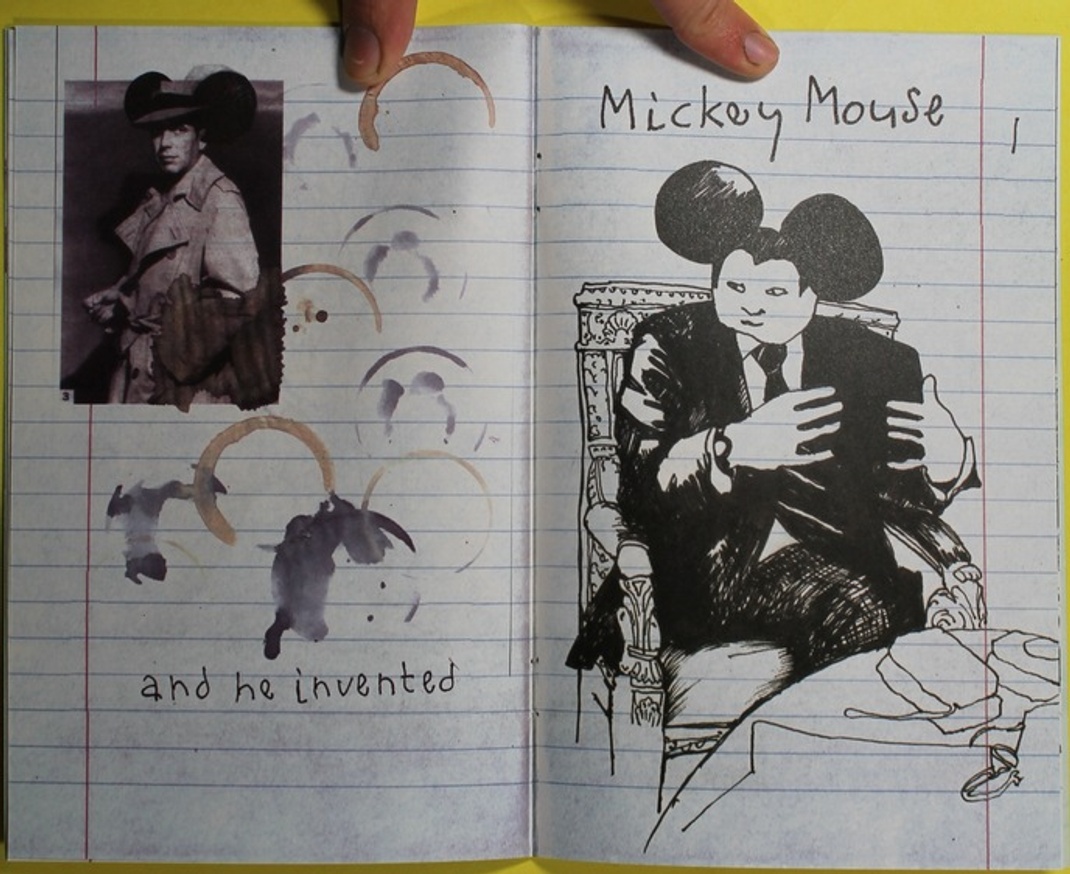 3
and he invented
Mickey Mouse